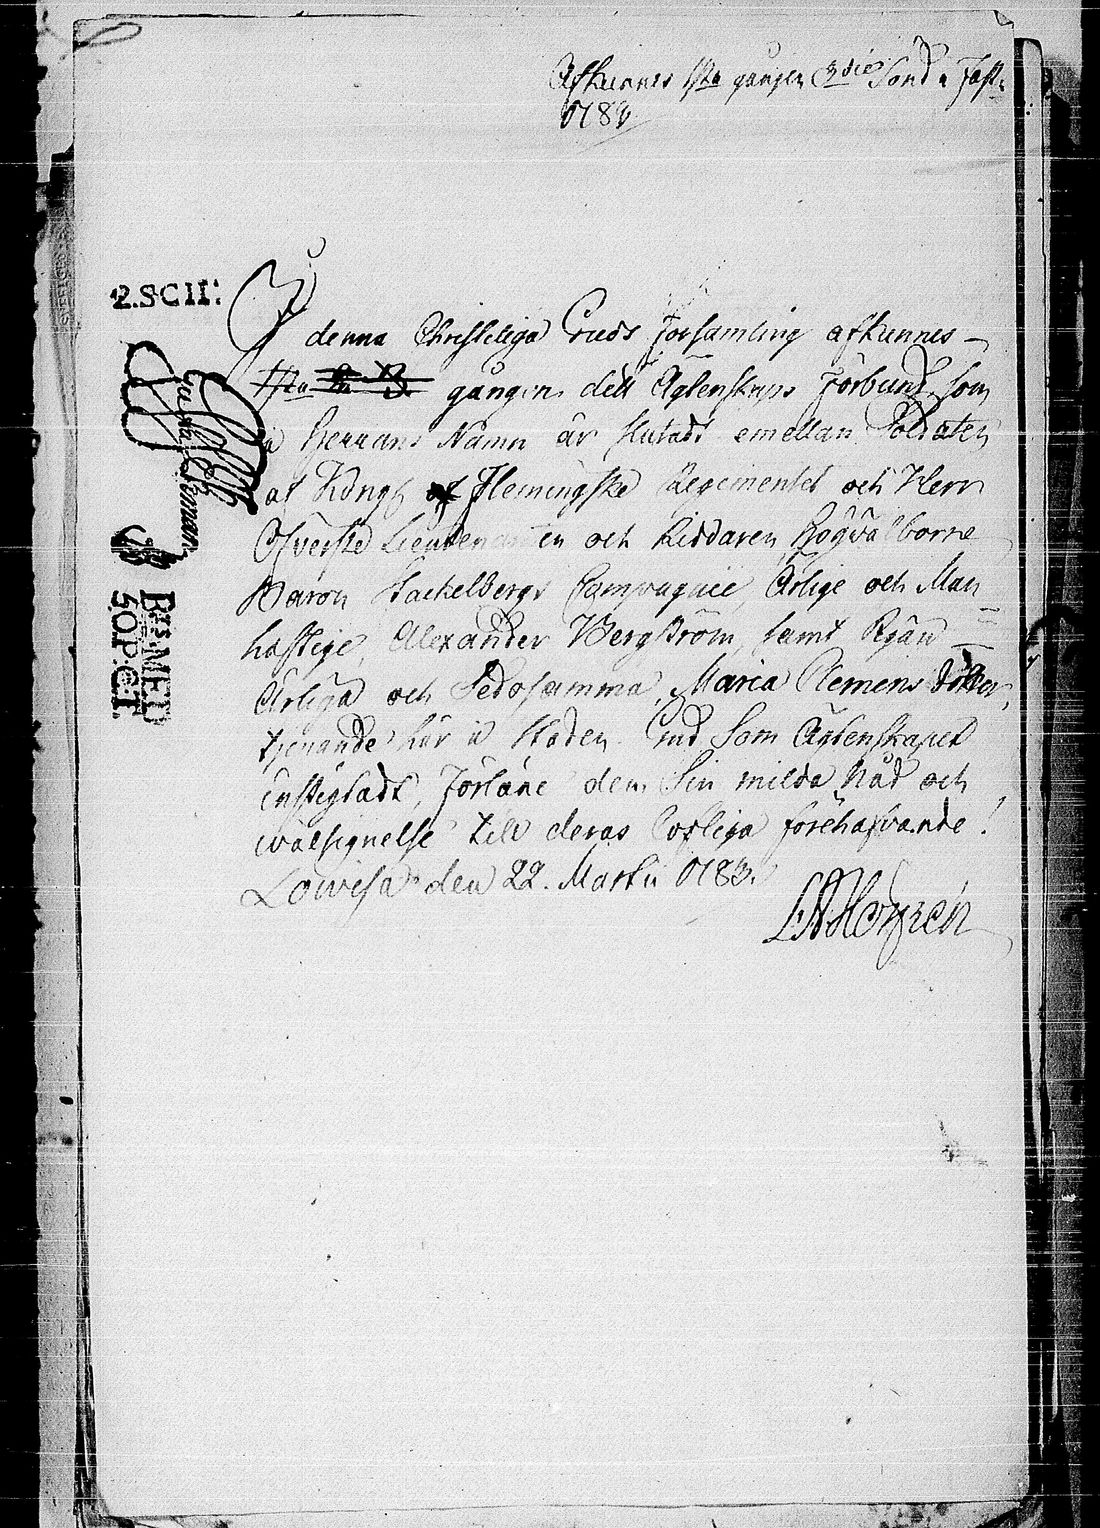 Afkunnes 1sta gången 3die Sönd. i Fast.
1783
2.SCH:
I denna Christeliga Guds Församling afkunnes
1sta gången dett Ägtenskaps Förbund, som
i Herrans Namn är slutadt emellan Soldaten
af Kongl. Flemingske Regimentet och Herr
Öfverste Lieutenanten och Riddaren, Högvälborne
Baron Stackelbergs Compagnie, Ärlige och Man
haftige, Alexander Bergström, samt Pigan
Ärliga och Sedosamma, Maria Clemens dotter,
tjenande här i Staden. Gud Som Ägtenskapet
instigtadt, Förläne dem Sin milda Nåd och
wälsignelse till deras Christliga förehafvande!
Lowisa den 22. Martii 1783.
BEt:MED
50.P:CT.